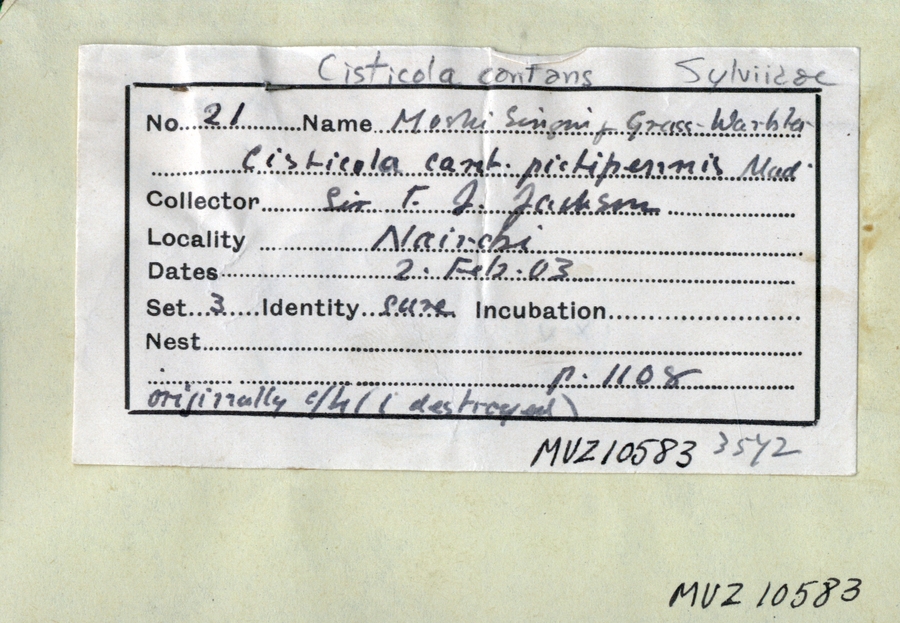 Cisticola contans Sylviidae
No. 21 Name Moshi Singing Grass-Warbler
Cisticola cant. pictipennis Mad.
Collector Sir F. J. Jackson
Locality Nairobi
Dates 2. Feb. 03
Set 3 Identity sure Incubation
Nest
p. 1108
originally c/4 (1 destroyed)
MVZ 10583 3542
MVZ 10583